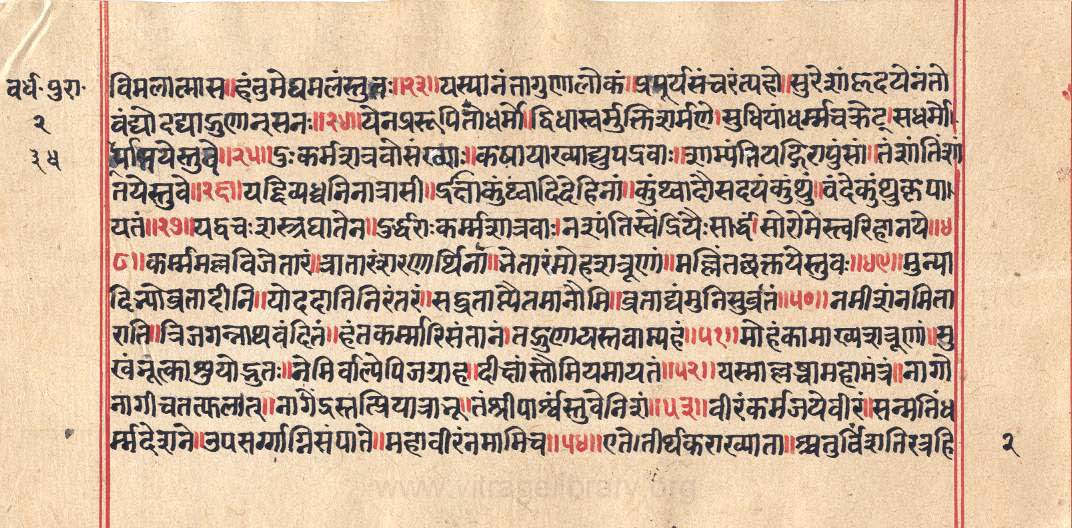 वर्ध॰ पुरा॰
२
३५
विमलात्मास॥हंतुमेद्यमलंस्तुतः॥२३॥यस्यानंतागुणालोकं।प्रपूर्यसंचरंत्यहो॥सुरेशांहृदयेनंतो
वंद्योदद्याद्गुणान्सनः॥२४॥येनप्ररूपितोधर्मो।द्विधास्वर्मुक्तिशर्मणे।सुधियांधर्म्मचक्रेट्।सधर्मो
र्मामयेस्तुवे॥२५॥दुःकर्मशत्रवोसंख्याः॥कषायाख्याद्युपद्रवाः॥शाम्यंतियद्गिरापुंसां।तंशांतिंशां
तयेस्तुवे॥२६॥यद्दिव्यध्वनिनात्रासी॥र्त्तीकुंथ्वादिदेहिनां॥कुंथ्वादौसदयंकुंथुं॥वंदेकुंथुकृपा।
यतं॥२७॥यद्वचःशस्त्रघातेन॥दुर्द्धराःकर्म्मशत्रवाः।नश्यंतिस्वेंद्रियैःसार्द्धं।सोरोमेस्त्वरिहानये॥४
८॥कर्म्ममल्लविजेतारं॥त्रातारंशरणार्थिनां॥नेतारंमोहशत्रूणां॥मल्लिंतच्छक्तयेस्तुवः॥४९॥मुन्या
दिभ्योव्रतादीनि॥योददातिनिरंतरं॥सद्वृताप्त्यैतमानौमि॥व्रताढ्यंमुनिसुव्रतं॥५०॥नमीशंनमिता
रातिं॥त्रिजगन्नाथवंदितं॥हंतकर्म्मारिसंतानं।तद्गुणायस्तवाम्यहं॥५१॥मोहंकामाख्यशत्रूणां॥मु
खंभूत्काशुयोद्भुतः॥नेमिर्वाल्येपिजग्राह॥दीक्षांस्तौमियमायतं॥५२॥यस्माल्लब्धामहामंत्रं॥नागो
नागीचतत्फलात्॥नागेंद्रस्तत्प्रियात्रान्॥तंश्रीपार्श्वंस्तुवेनिशं॥५३॥वीरंकर्मजयेवीरं॥सन्मतिंध
र्म्मदेशने॥उपसर्ग्गाग्निसंपाते॥महावीरंनमामिच॥५४॥एतेतीर्थकराख्याता॥श्चतुर्विंशतिरत्रहि
२
www.vitragelibrary.org